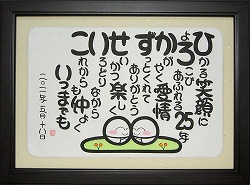 ひかる笑顔に
よろこびあふれる25年
かがやく愛情
ずっとくれて
ありがとう
せいかつ楽しく
いろどりながら
これからも仲よく
いつまでも